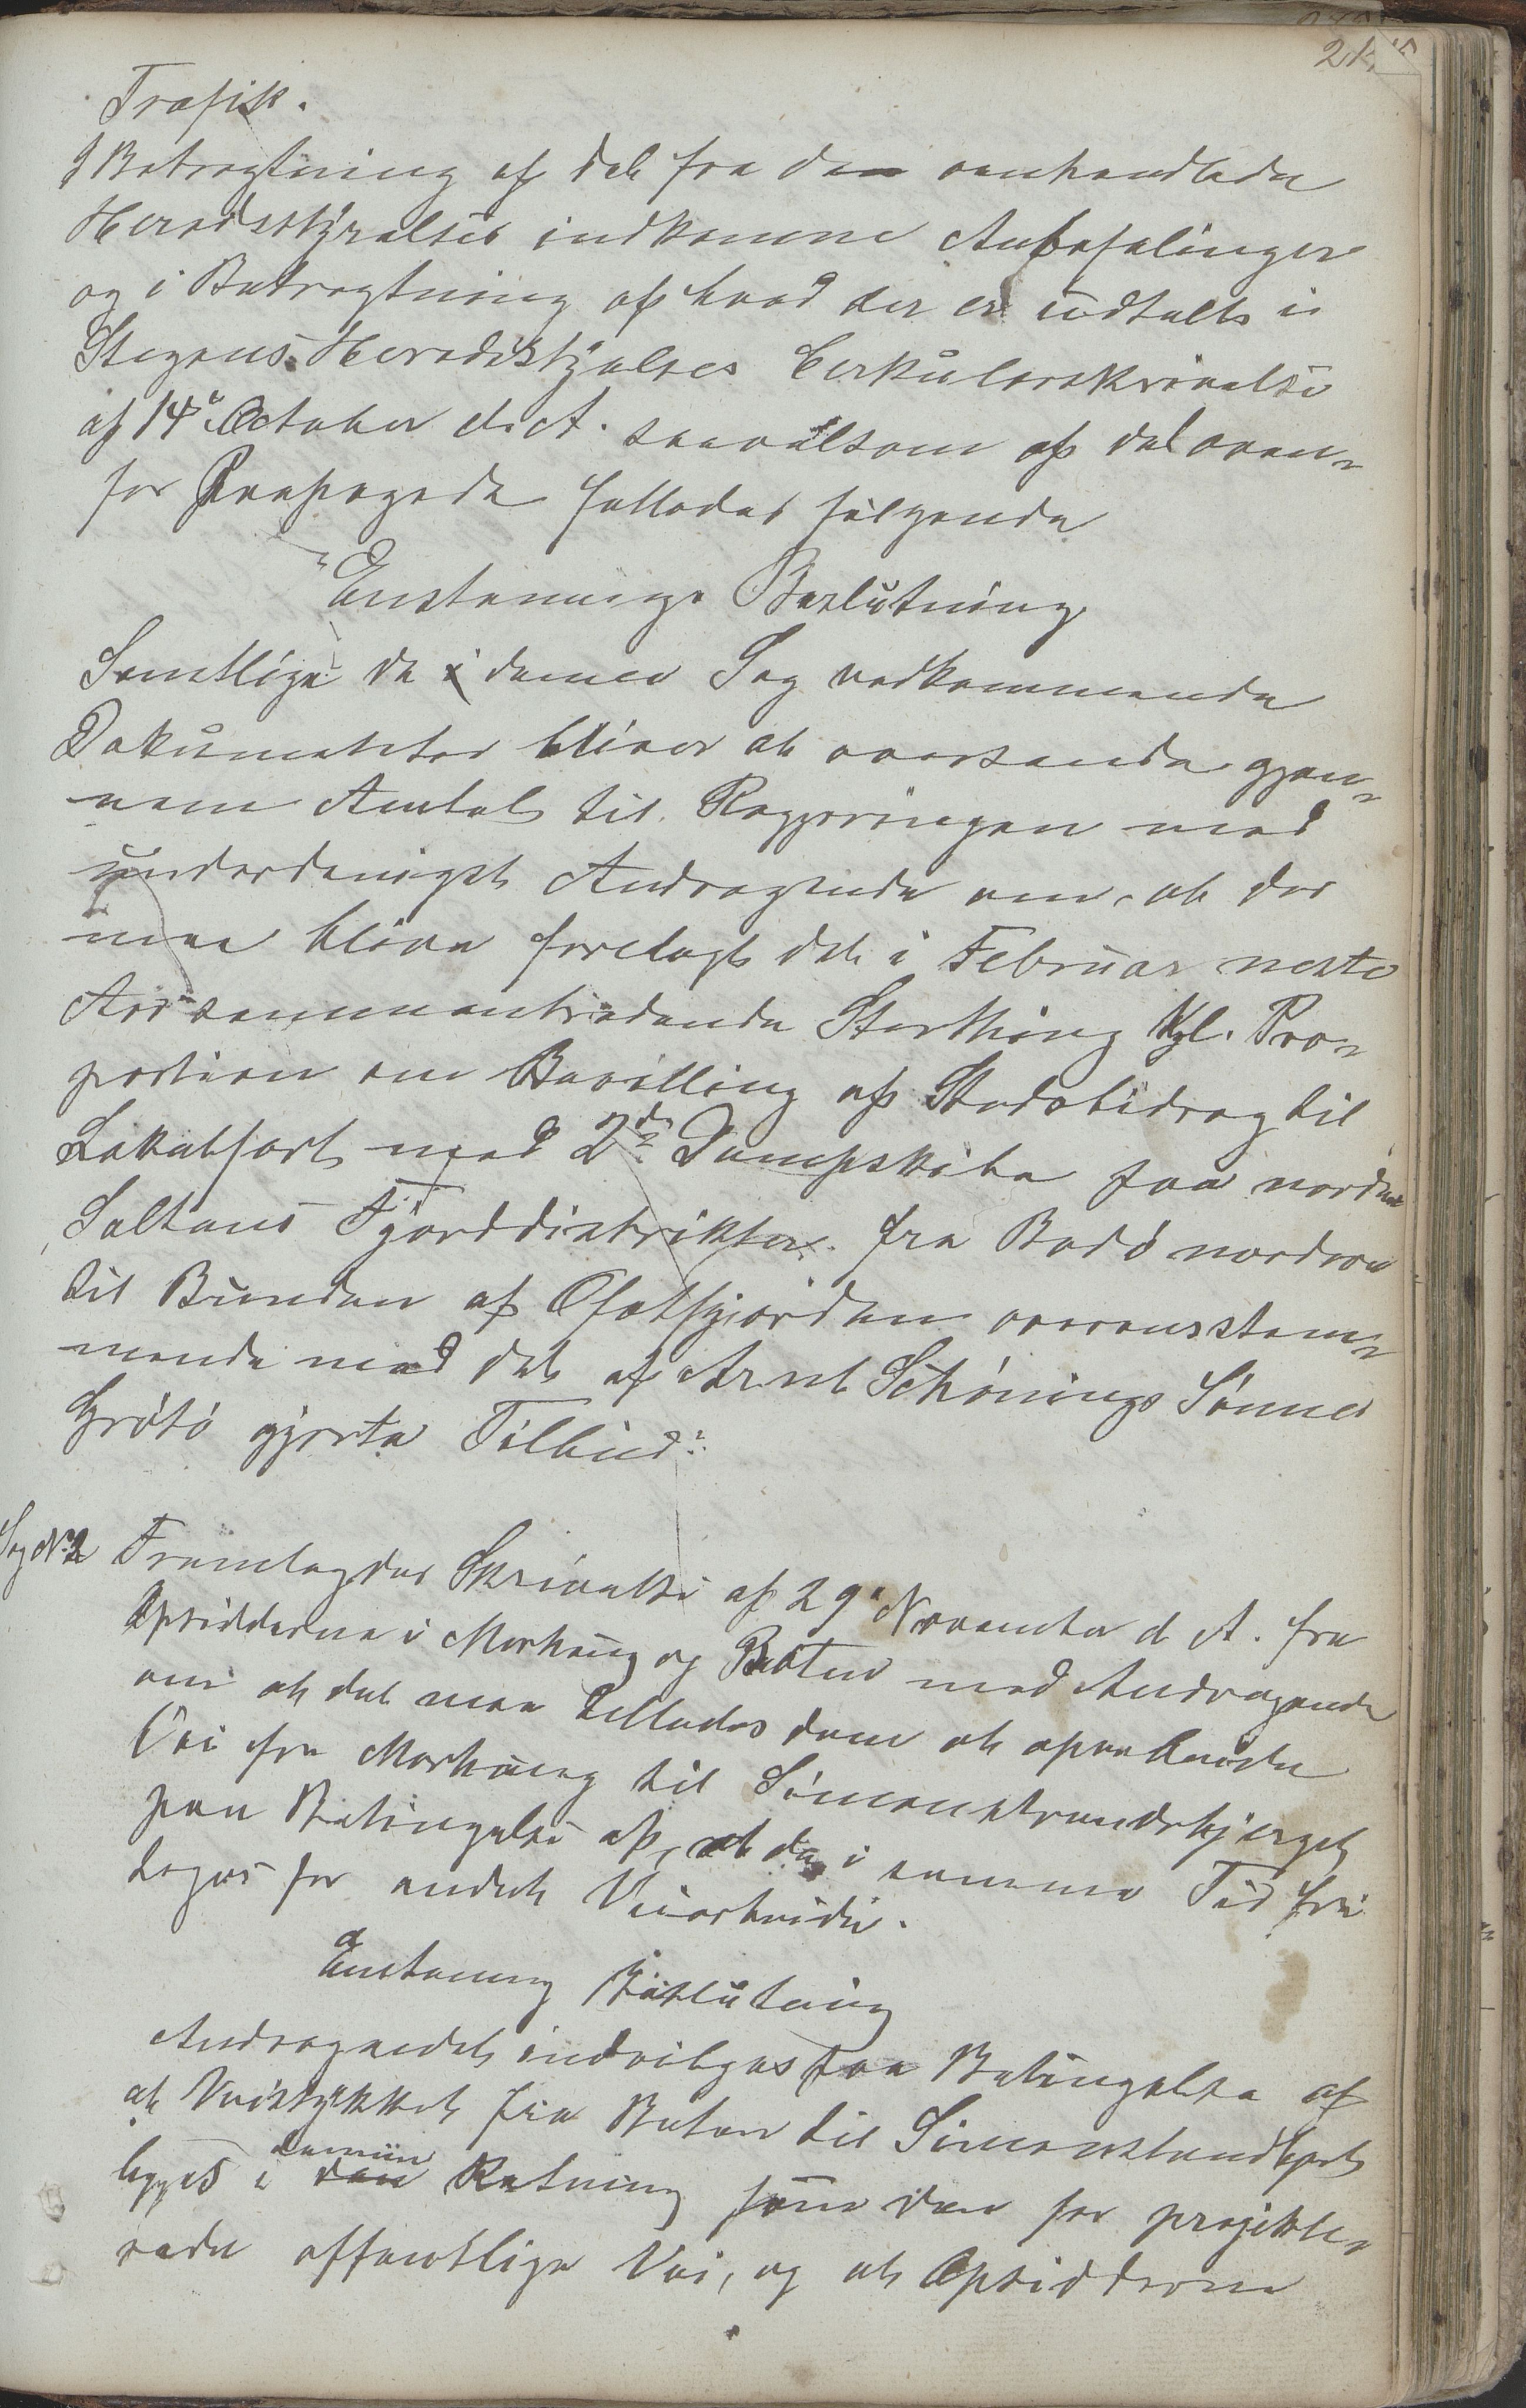 Trafik.
I Betragtning af det fra den omhandlede
Heredsstyrelses indkomne Anbefalinger
og i Betragtning af hvad der er udtalt i
Stegens Heredsstyelses Cirkulærskrivelse
af 14de October d. A. saavelsom af det oven-
for Paapegede fattedes følgende
"Enstemmige Beslutning
Samtlige de i denne Sag vedkommende
Dokumenter bliver at oversende gjen-
nem Amtet til Regjeringen med
underdanigst Andragende om, at der
maa blive forelagt det i Februar neste
Aar sammentrædende Storthing Kgl. Pro-
position om Bevilling af Statsbidrag til
Lokalfart med 2de Dampskibe paa nordre
Saltens Fjorddistrikter fra Bodø nordover
til Bunden af Ofotfjorden overensstem-
mende med det af Arnt Schønings Sønner
Grøtø gjorte Tilbud".
Sag No 2 Fremlagdes Skrivelse af 29de November d. A. fra
Opsidderne i Morhaug og Botn med Andragende
om at det maa tillades dem at oparbeide
Vei fra Morhaug til Simonstrandskjerget
paa Betingelse af, at de i samme Tid fri-
tages for andet Veiarbeide.
Enstemmig Beslutning
Andragendet indvilges paa Betingelse af
at Veistykket fra Botn til Simonstrandkjerg
lægges i den samme Retning som den før projekte-
rede offentlige Vei, og at Opsidderne